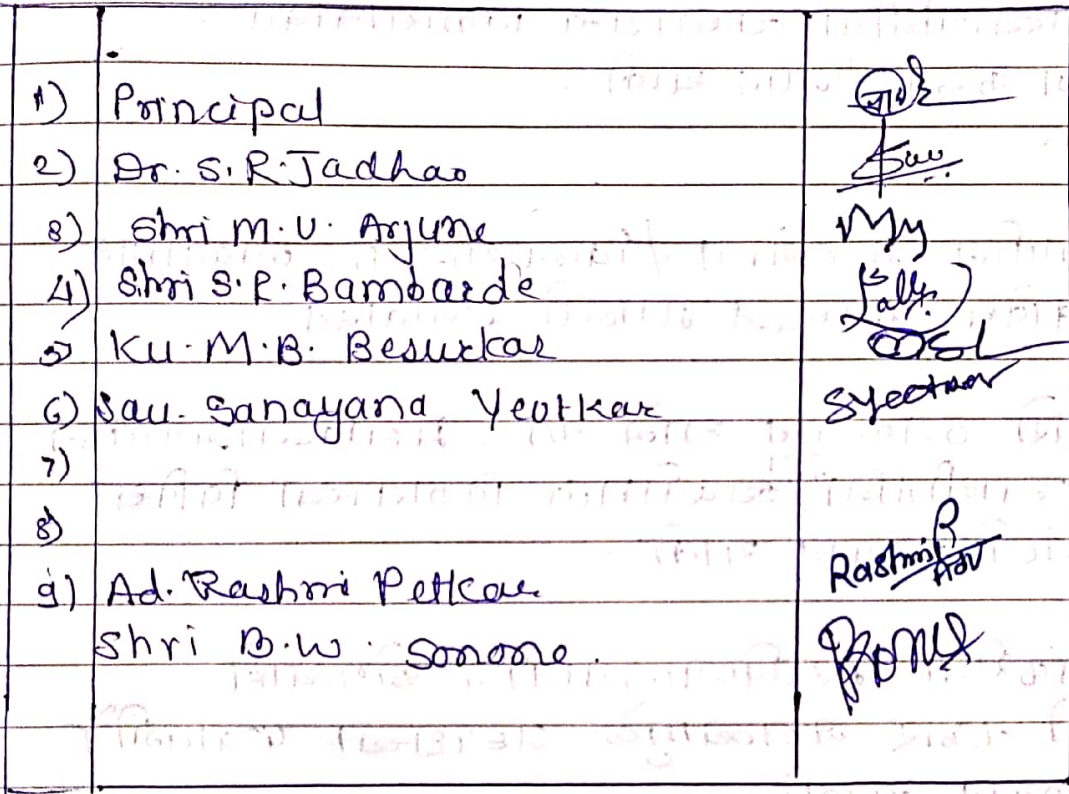 1) Principal
2) Dr. S. R. Jadhao
3) Shri M. U. Arjune My
4) Shri S. R. Bambarde
5) Ku. M. B. Besurkar
6) Sau. Sanayana Yeotkar
7)
8)
9) Ad. Rashmi Petkar Rashmi
Shri B. W. Sonone.